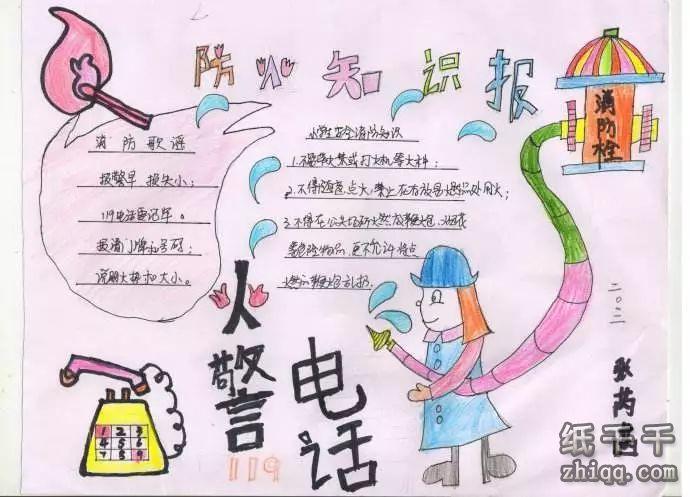 防火知识报
消防歌谣
报警早 损失小；
119电话要记牢。
报清门牌和号码；
说明火势和大小。
小学生安全消防知识
1.不要带火柴或打火机等火种；
2.不得随意点火，禁止在存放易燃品处用火；
3.不得在公共场所燃放鞭炮，
更不允许将点
燃的鞭炮乱扔。
消防栓
火警
119
电话
1 2 3
4 5 6
7 8 9
二〇一二
张芮
纸千千
zhiqq.com